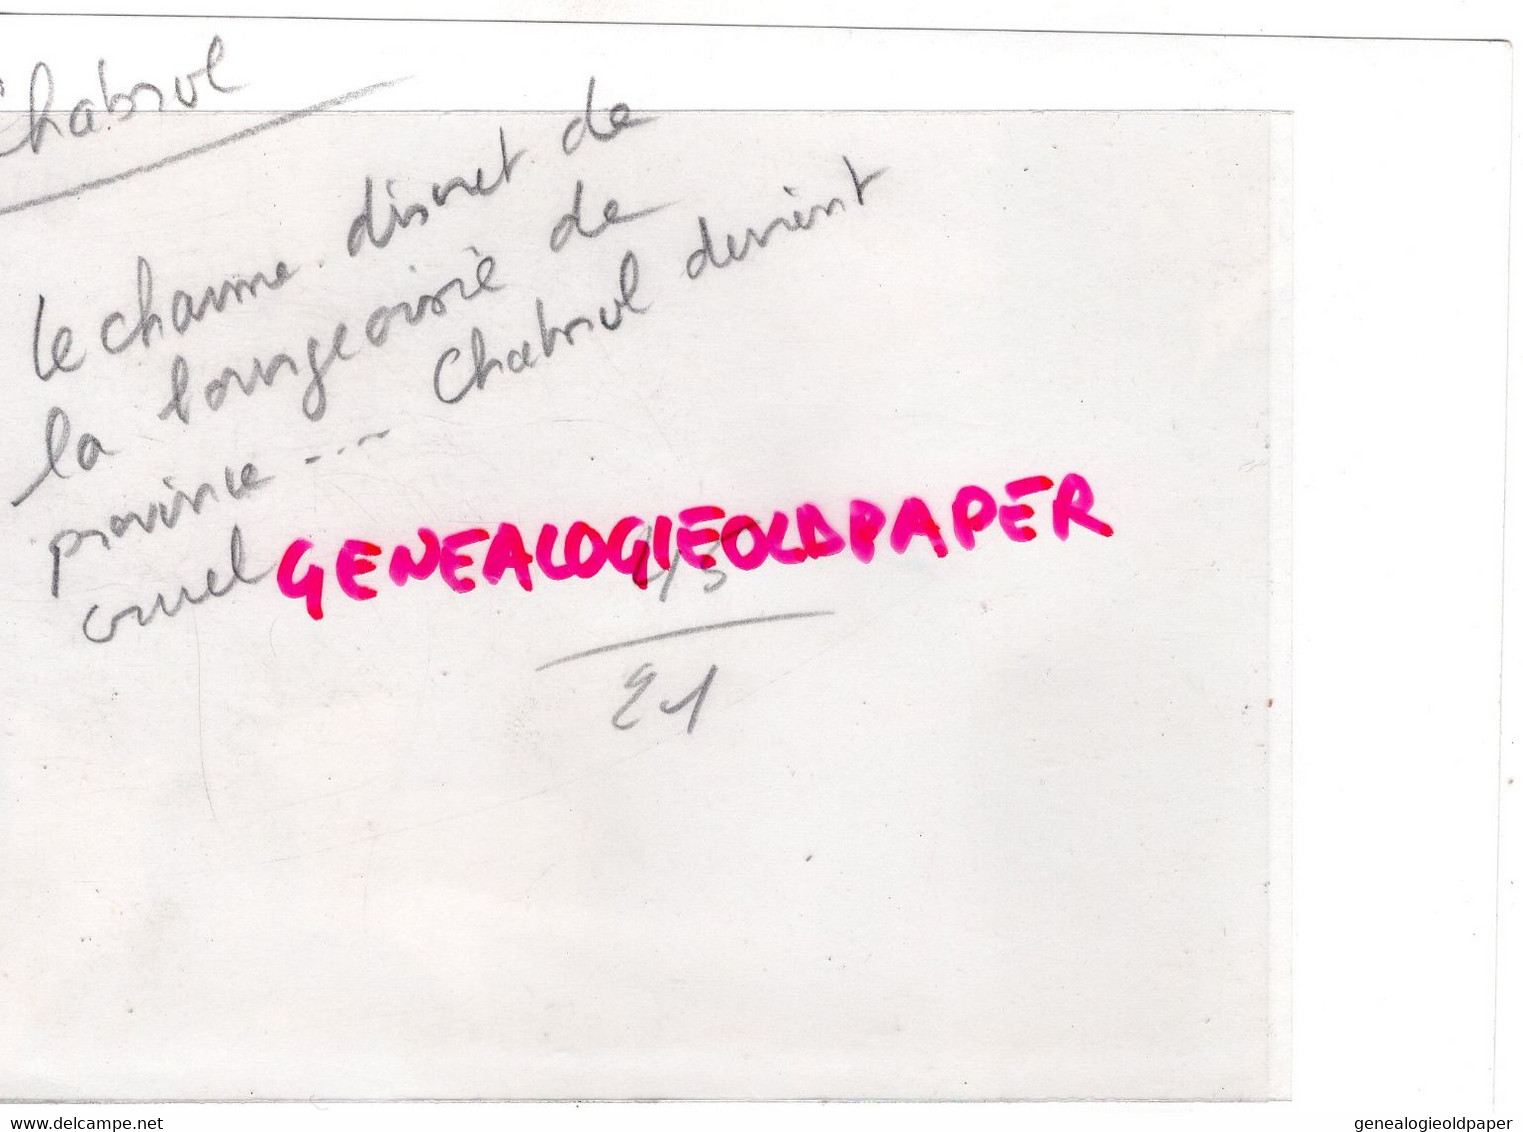 Chabrol
le charme discret de
la bourgeoisie de
province --- Chabrol devient
cruel
GENEALOGIEOLDPAPER
45
21
www.delcampe.net
genealogieoldpaper